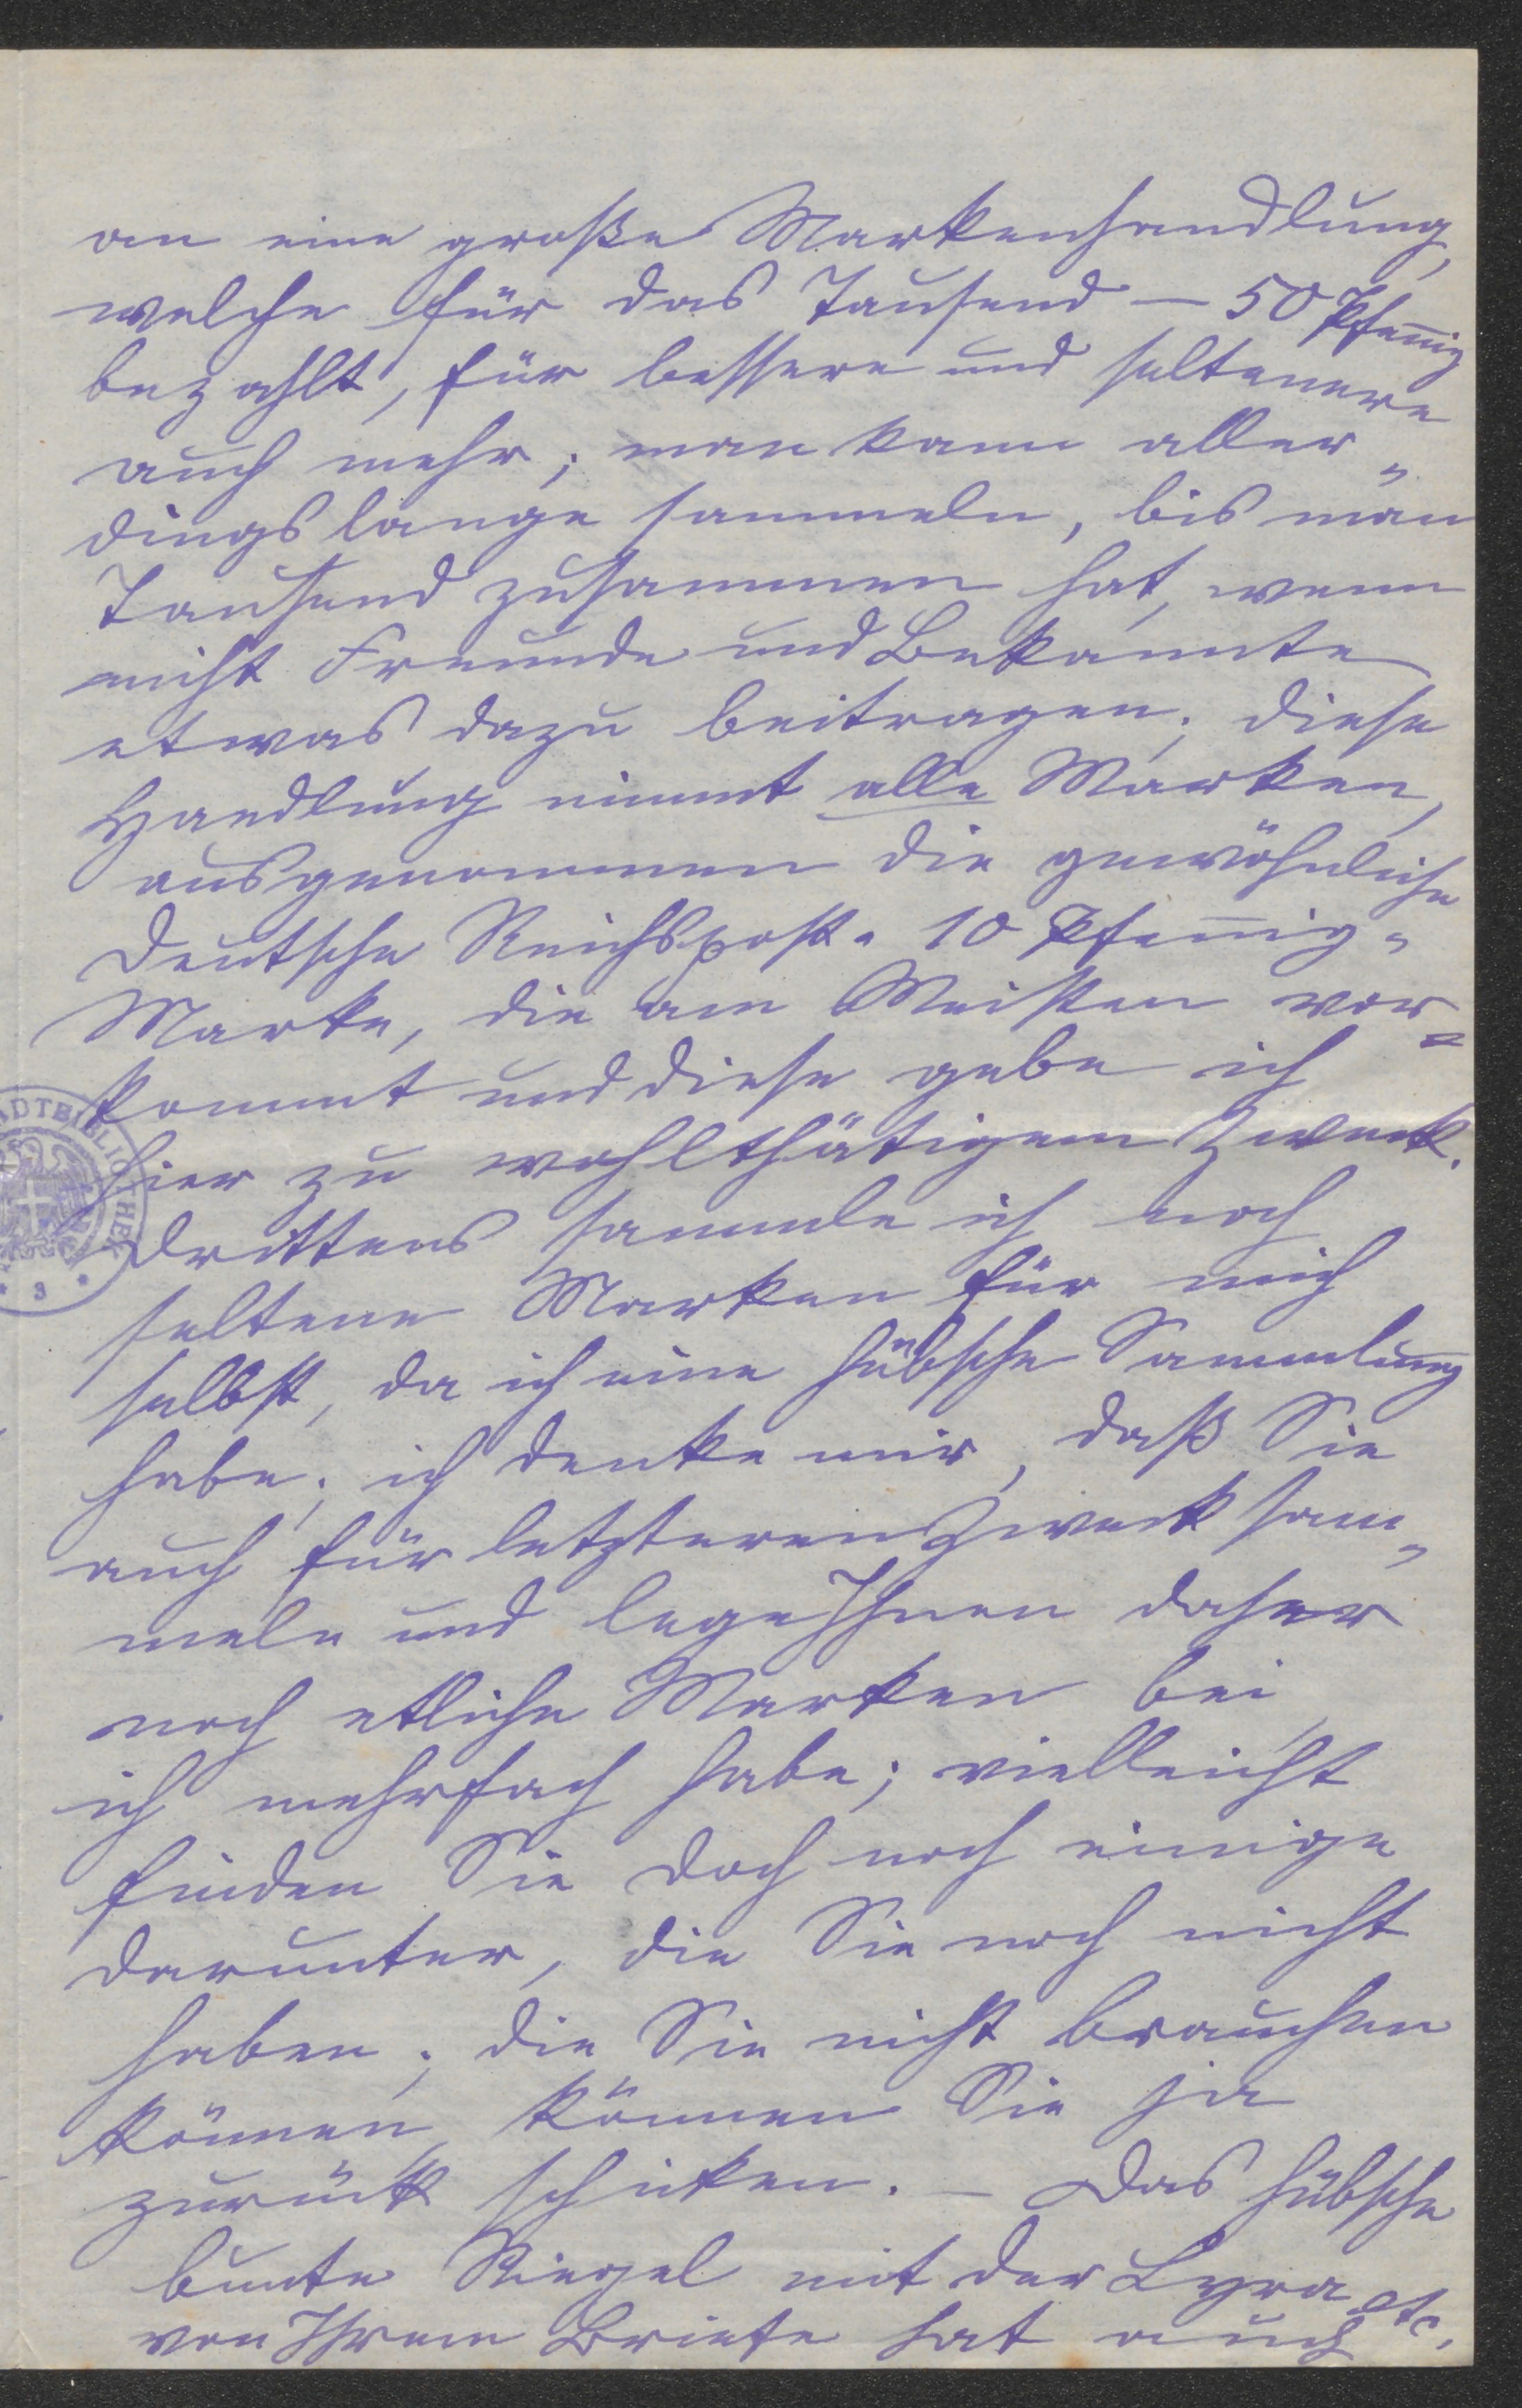 an eine große Markenhandlung,
welche für das Tausend – 50 Pfennig
bezahlt, für bessere und seltenere
auch mehr; man kann aller„
dings lange sammeln, bis man
Tausend zusammen hat, wenn
nicht Freunde und Bekannte
etwas dazu beitragen; diese
Handlung nimmt alle Marken,
ausgenommen die gewöhnliche
Deutsche Reichspost- 10 Pfennig„
Marke, die am Meisten vor=
kommt und diese gebe ich
hier zu wohlthätigem Zweck.
Drittens sammle ich noch
seltene Marken für mich
selbst, da ich eine hübsche Sammlung
habe; ich denke mir, daß Sie
auch für letzteren Zweck sam„
meln und lege Ihnen daher
noch etliche Marken bei,
ich mehrfach habe; vielleicht
finden Sie doch noch einige
darunter, die Sie noch nicht
haben; die Sie nicht brauchen
können, können Sie ja
zurück schicken. – Das hübsche
bunte Siegel mit der Lyra etc.
von Ihrem Briefe hat auch
ADTBIBLIOTHEK
3